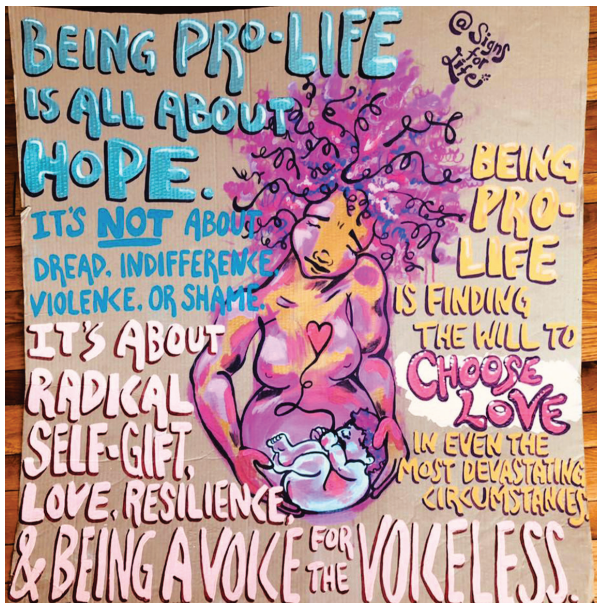 BEING PRO-LIFE
IS ALL ABOUT
HOPE.
IT'S NOT ABOUT
DREAD, INDIFFERENCE,
VIOLENCE, OR SHAME.
IT'S ABOUT
RADICAL
SELF-GIFT,
LOVE, RESILIENCE,
& BEING A VOICE FOR THE VOICELESS.
@Signs
for
Life
BEING
PRO-
LIFE
IS FINDING
THE WILL TO
CHOOSE
LOVE
IN EVEN THE
MOST DEVASTATING
CIRCUMSTANCES.